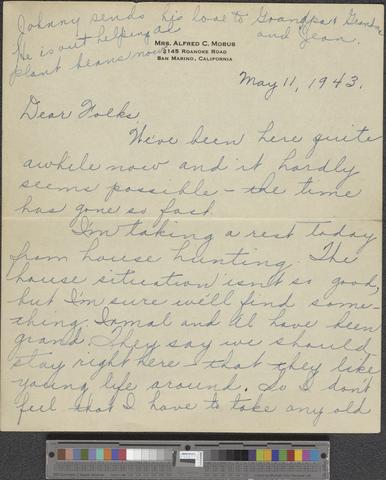 Johnny sends his love to Grandpa & Grandma
and Jean.
He is out helping Al
plant beans now.
MRS. ALFRED C. MOBUS
2145 ROANOKE ROAD
SAN MARINO, CALIFORNIA
May 11, 1943.
Dear Folks,
We've been here quite
awhile now and it hardly
seems possible - the time
has gone so fast.
I'm taking a rest today
from house hunting. The
house situation isn't so good,
but I'm sure we'll find some-
thing. Irmal and Al have been
grand. They say we should
stay right here - that they like
young life around. So I don't
feel that I have to take any old